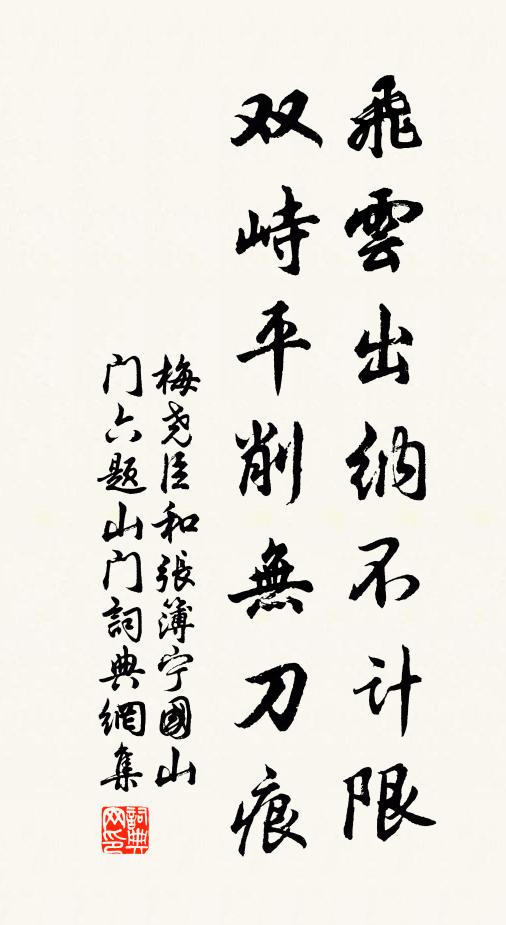 飛雲出纳不计限
双峙平削無刀痕
梅尧臣和張簿宁國山
门六题山门詞典網集
詞典
网印